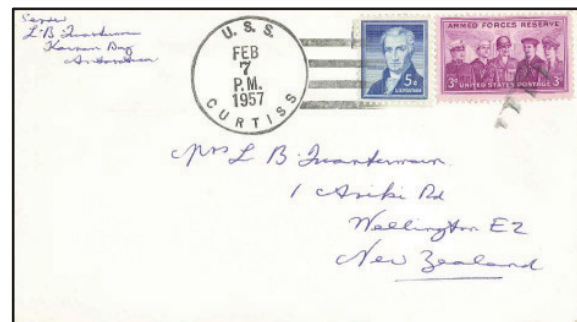 Sender
L B Quartermain
Antarctica
U.S.S.
FEB
7
P.M.
1957
CURTISS
5¢
ARMED FORCES RESERVE
3¢ UNITED STATES POSTAGE 3¢
Mrs L B Quartermain
1 Ariki Rd
Wellington E2
New Zealand